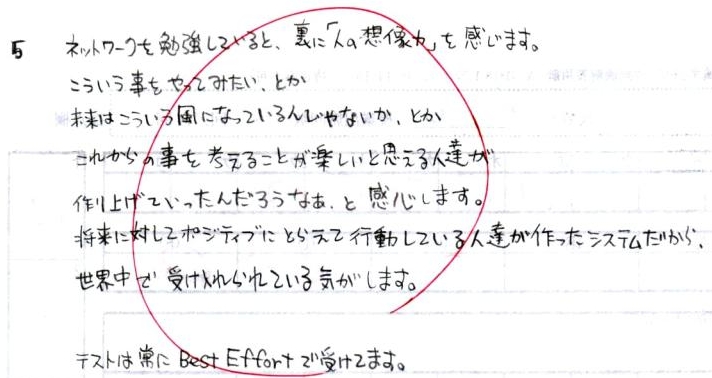 5 ネットワークを勉強していると、裏に「人の想像力」を感じます。
こういう事をやってみたい、とか
未来はこういう風になっているんじゃないか、とか
これからの事を考えることが楽しいと思える人達が
作り上げていったんだろうなぁ、と感心します。
将来に対してポジティブにとらえて行動している人達が作ったシステムだから、
世界中で受け入れられている気がします。
テストは常にBest Effortで受けてます。